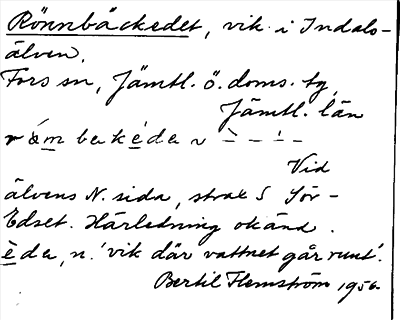 Rönnbäckedet, vik i Indals-
älven.
Fors sn, Jämtl. ö. doms. tg,
Jämtl. län
bakèda
Vid
älvens N. sida, strax S Sör-
Edset. Härledning okänd.
èda, n. 'vik där vattnet går runt'.
Bertil Flemström 1956.